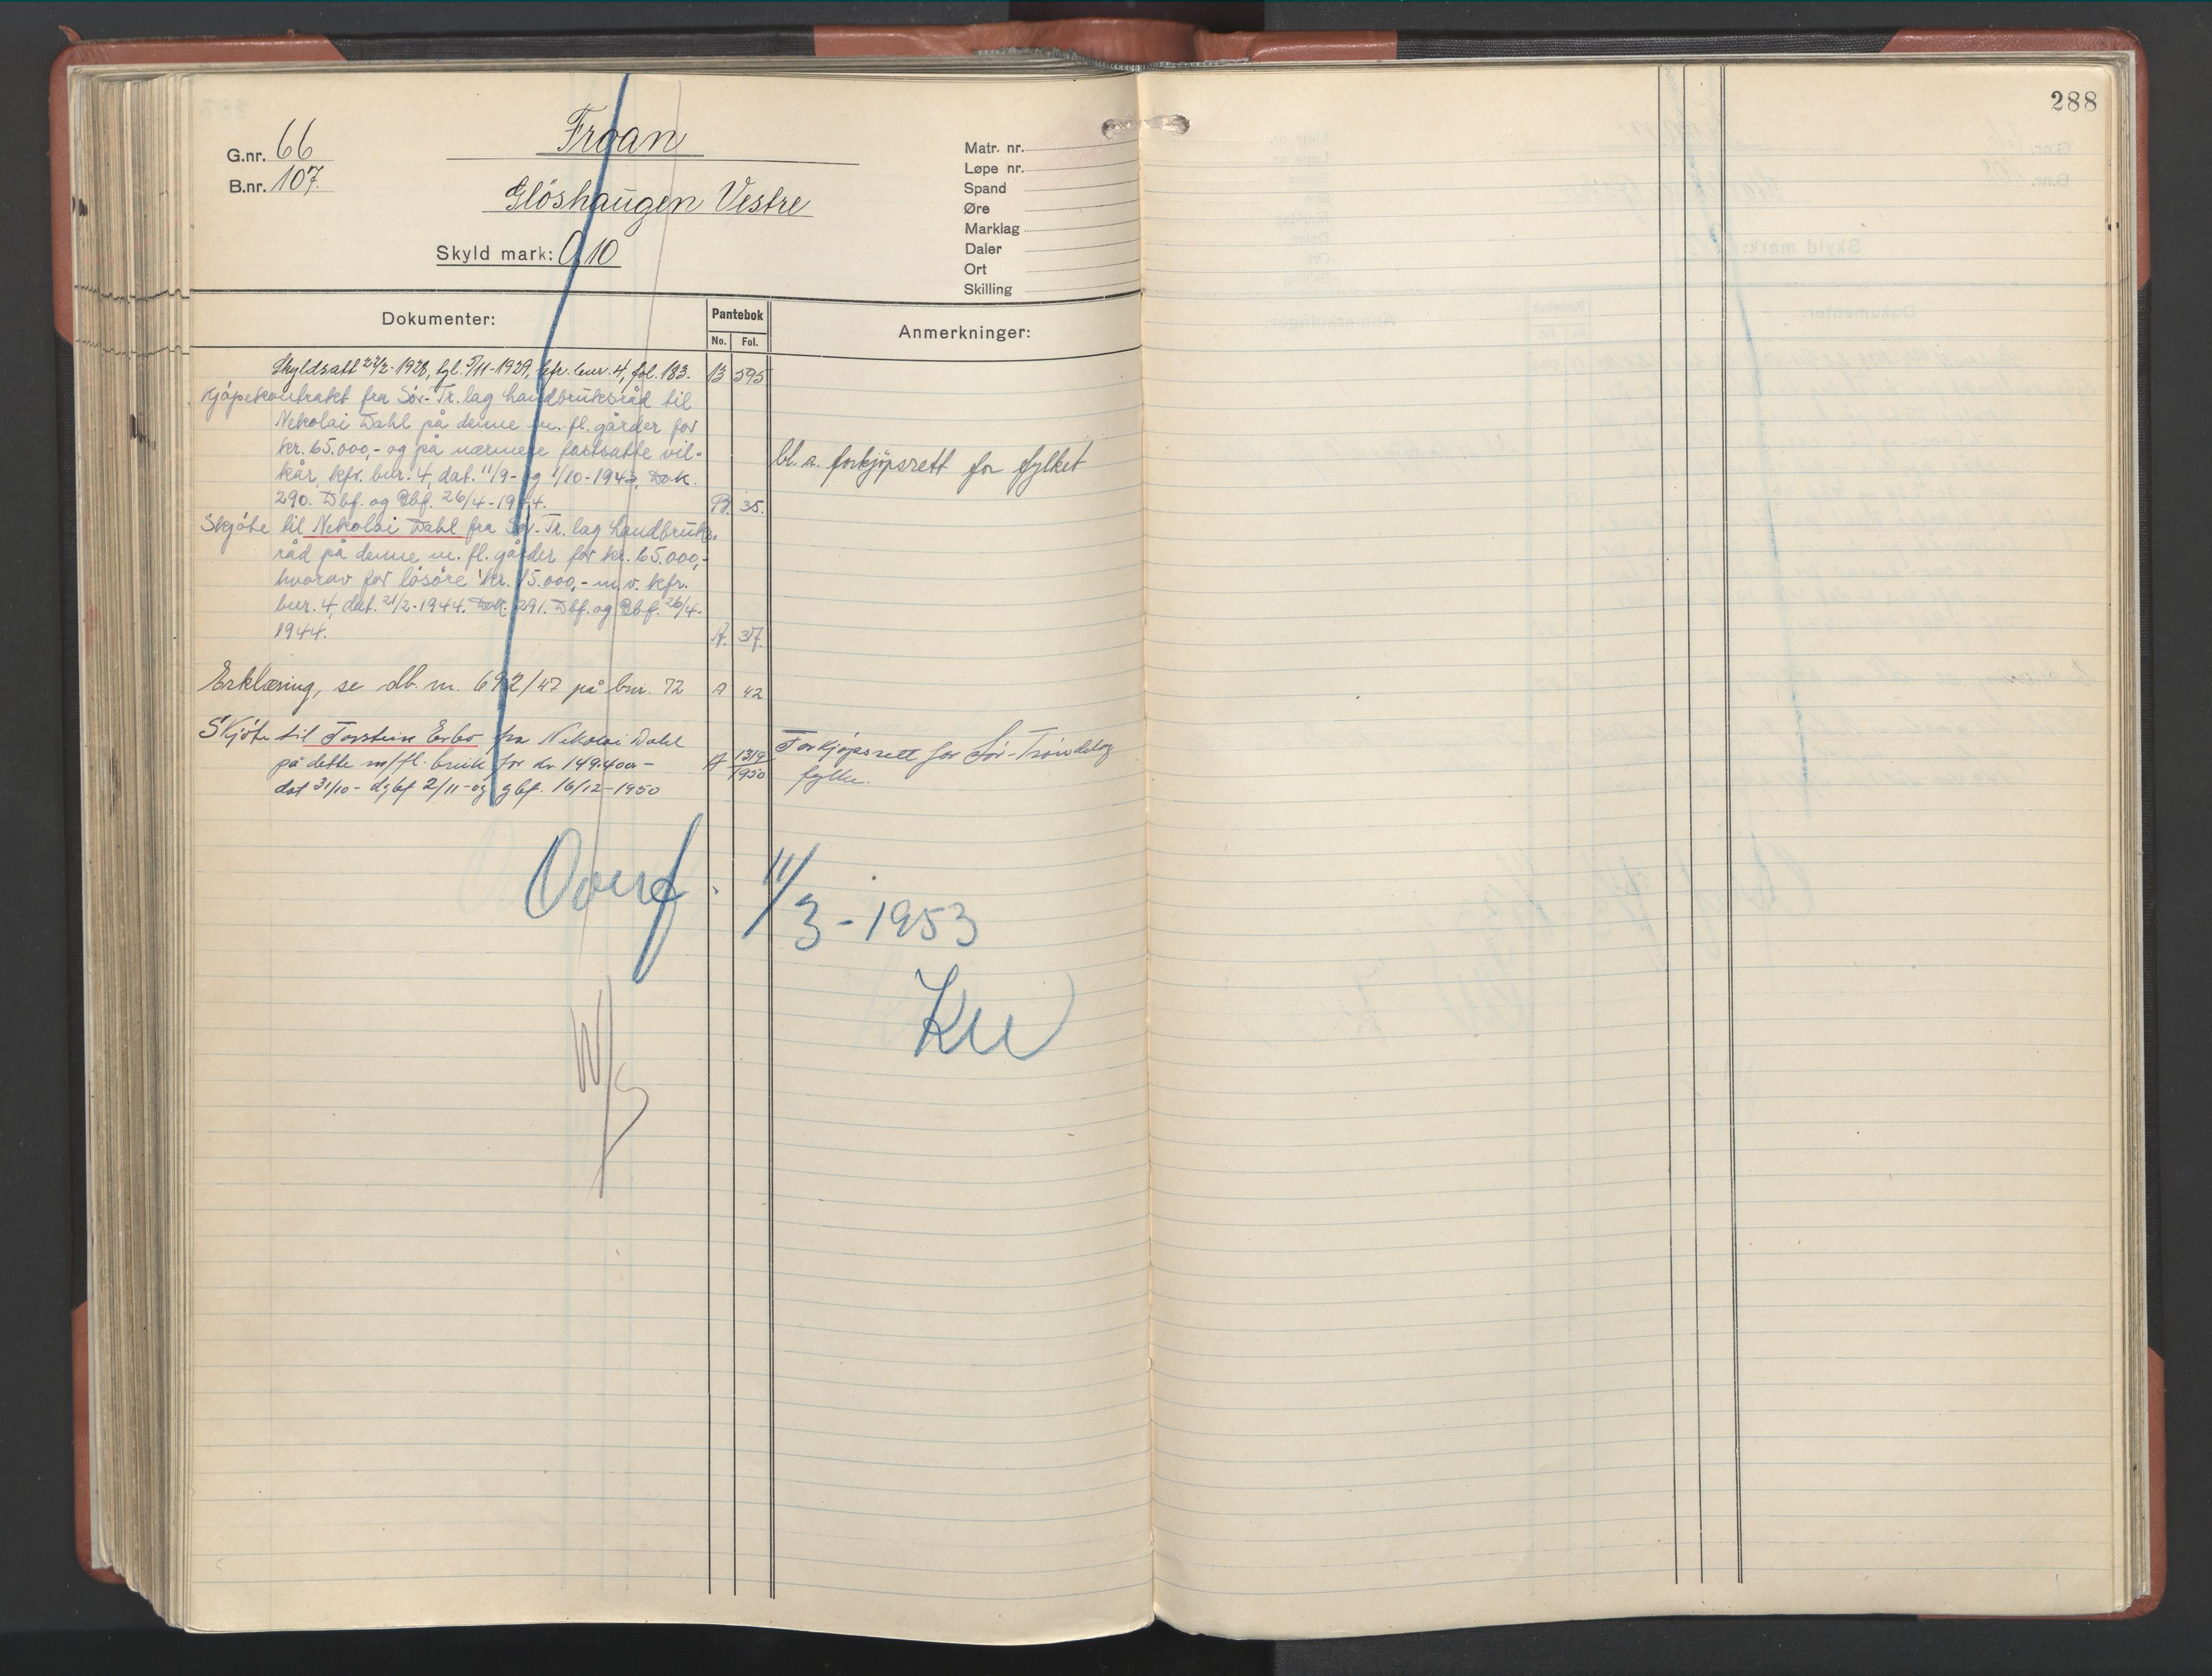 288
G.nr. 66
B.nr. 107.
Froan
Glöshaugen Vestre
Skyld mark: 0,10
Matr. nr.
Løpe nr.
Spand
Øre
Marklag
Daler
Ort
Skilling
Dokumenter:
Pantebok
No. Fol.
Anmerkninger:
Skyldsatt 27/2-1928, tgl. 5/11-1929, kfr. bnr. 4, fol. 183. B 595
Kjöpekontrakt fra Sör-Tr.lag landbruksråd til
Nekolai Dahl på denne m. fl. gårder for
kr. 65.000,- og på nærmere fastsatte vil-
kår, kfr. bnr. 4, dat. 11/9- og 1/10-1943, Dok.
290. Dbf. og Gbf. 26/4-1944. B. 35.
bl. a. forkjøpsrett for fylket
Skjöte til Nekolai Dahl fra Sör-Tr. lag landbruks-
råd på denne m. fl. gårder for kr. 65.000,-
hvorav for lösöre kr. 15.000,- m.v. kfr.
bnr. 4, dat. 21/2-1944. Dok. 291. Dbf. og Gbf. 26/4-
1944. A. 37.
Erklæring, se db. nr. 692/47 på bnr. 72 A 42
Skjöte til Torstein Erbo fra Nikolai Dahl
på dette m/fl. bruk for kr. 149.400 -
dat 31/10 - dgbf 2/11 - og gbf. 16/12-1950
A 1319/1950
Forkjöpsrett for Sör-Tröndelag
fylke.
Overf. 11/3-1953